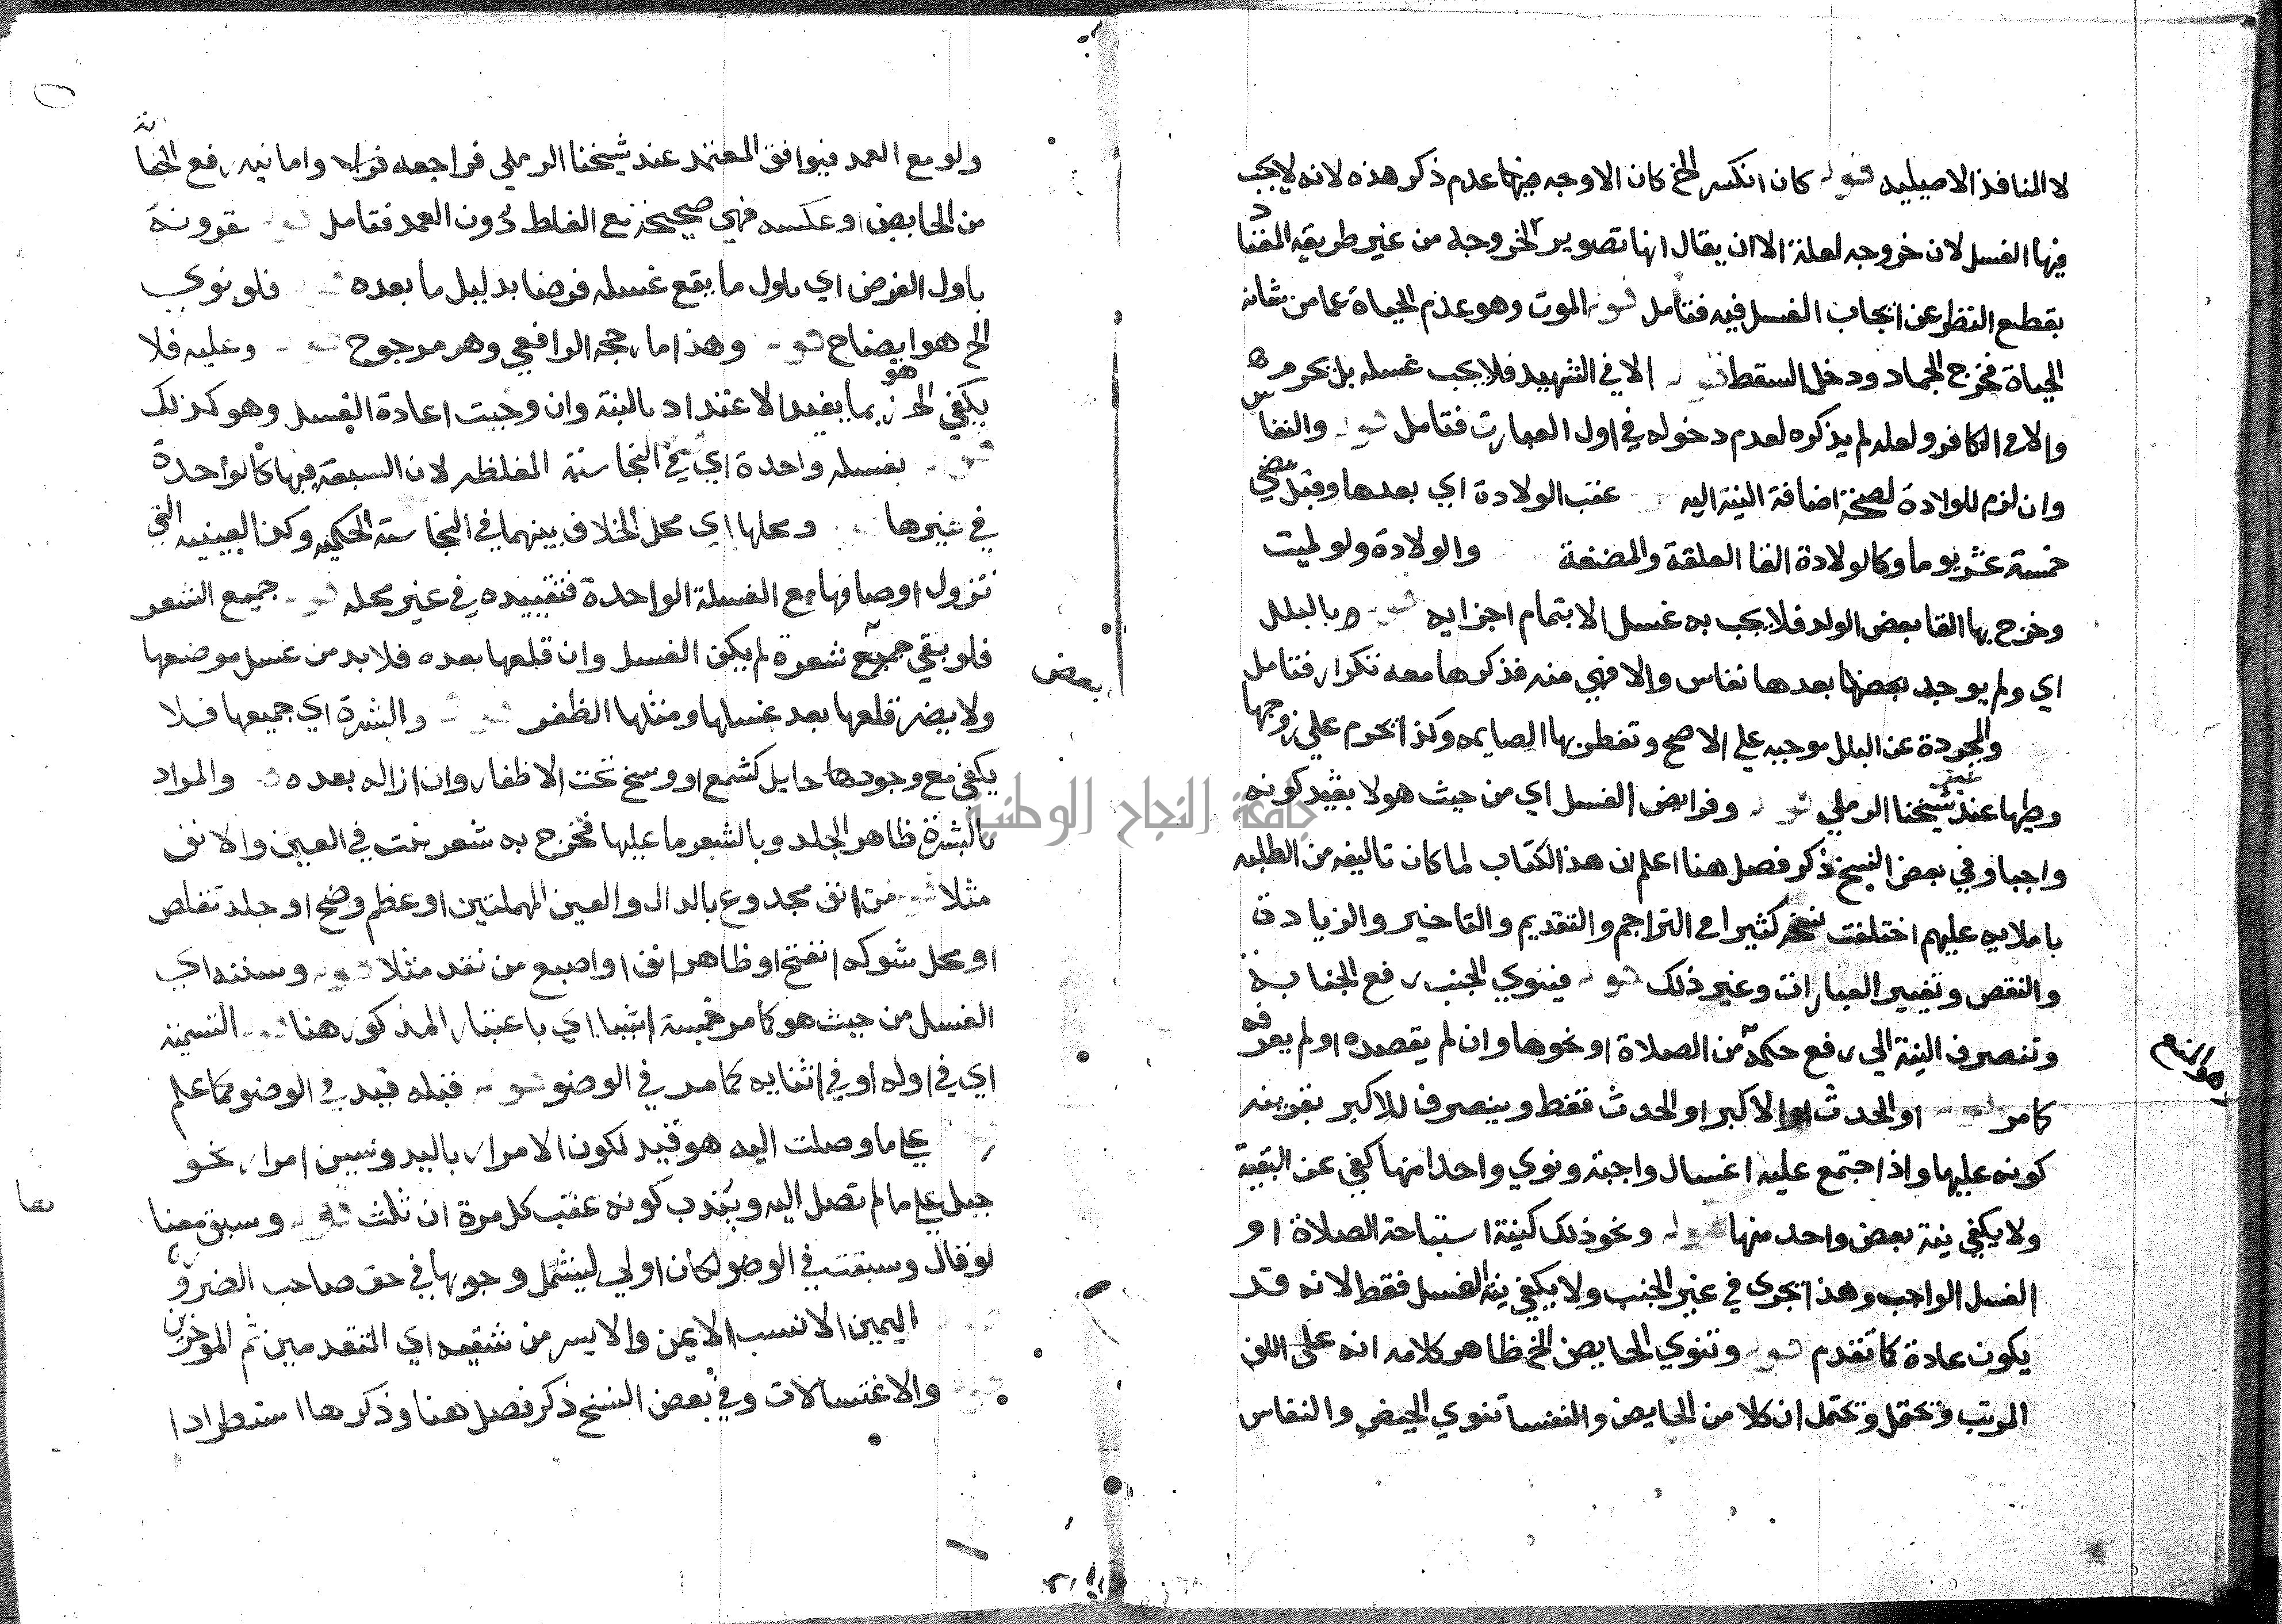 لا المنافذ الاصيليه قوله كان انكسر الخ كان الاوجه فيها عدم ذكر هذه لانه لا يجب
فيها الغسل لان خروجه لعلة الا ان يقال انها تصوير لخروجه من غير طريقه المعتاد
بقطع النظر عن ايجاب الغسل فيه فتامل قوله الموت وهو عدم الحياة عما من شانه
الحياة فخرج الجماد ودخل السقط قوله الا في الشهيد فلا يجب غسله بل يحرم
والا في الكافر ولعله لم يذكره لعدم دخوله في اول العبارت فتامل قوله والنفاس
وان لزم للولادة لصحة اضافة النية اليه عقب الولادة اي بعدها وقبل مضي
خمسة عشر يوما وكالولادة القا العلقة والمضغة والولادة ولو لميت
وخرج بها القا بعض الولد فلا يجب به غسل الا بتمام اجزايه قوله وبالبلل
اي ولم يوجد بعضها بعدها نفاس والا فهي منه فذكرها معه تكرار فتامل
والمجردة عن البلل موجبه على الاصح وتفطر بها الصايمه وكذا يحرم علي زوجها
وطيها عند شيخنا الرملي قوله وفرايض الغسل اي من حيث هو لا بقيد كونه
غير
واجبا وفي بعض النسخ ذكر فصل هنا اعلم ان هذا الكتاب لما كان تاليفه من الطلبه
باملايه عليهم اختلفت نسخه كثيرا في التراجم والتقديم والتاخير والزيادة
والنقص وتغيير العبارات وغير ذلك قوله فينوي الجنب رفع الجنابة
وتنصرف النية الي رفع حكمه من الصلاة او نحوها وان لم يقصده او لم يعرفه
كما مر او الحدث الاكبر او الحدث فقط وينصرف للاكبر بقرينه
كونه عليها واذا اجتمع عليه اغسال واجبة ونوي واحدا منها كفي عن البقية
ولا يكفي نية بعض واحد منها قوله ونحو ذلك كنية استباحة الصلاة او
الغسل الواجب وهذا يجري في غير الجنب ولا يكفي نية الغسل فقط لانه قد
يكون عادة كما تقدم قوله وتنوي الحايض الخ ظاهر كلامه انه على اللف
المرتب ويحتمل ان كلا من الحايض والنفسا تنوي الحيض والنفاس
ولو مع العمد فيوافق المعتمد عند شيخنا الرملي فراجعه واما نيه رفع الجنابة
من الحايض او عكسه فهي صحيحة مع الغلط دون العمد فتامل قوله مقرونة
باول الفرض اي باول ما يقع غسله فرضا بدليل ما بعده فلو نوي
الخ هو ايضاح قوله وهذا ما رجحه الرافعي وهو مرجوح قوله وعليه فلا
يكفي الخ هو بما يفيد الاعتداد بالنية وان وجبت اعادة الغسل وهو كذلك
قوله بغسله واحدة اي في النجاسة المغلظه لان السبعة فيها كالواحدة
في غيرها ومحلها اي محل الخلاف بينهما في النجاسة الحكميه وكذا العينيه التي
تزول اوصافها مع الغسلة الواحدة فتقييده في غير محله قوله جميع الشعر
فلو بقي جميع شعرة لم يكف الغسل وان قلعها بعده فلا بد من غسل موضعها
بعض
ولا يضر قلعها بعد غسلها ومثلها الظفر قوله والبشرة اي جميعها فلا
يكفي مع وجودها حايل كشمع او وسخ تحت الاظفار وان ازاله بعده والمراد
بالبشرة ظاهر الجلد وبالشعر ما عليها فخرج به شعر بنت في العين والانف
مثلا قوله من انف مجدوع بالدال والعين المهملتين او عظم وضح او جلد تقلص
او محل شوكه انفتح او ظاهر انف او اصبع من نقد مثلا قوله وسننه اي
الغسل من حيث هو كما مر خمسة اشيا اي باعتبار المذكور هنا التسمية
اي في اوله او في اثنايه كما مر في الوضو قوله قبله قيد في الوضو كما علم
علي ما وصلت اليه هو قيد لكون الامرار باليد ويسن امرار نحو
حبل علي ما لم تصل اليه ويندب كونه عقب كل مرة ان ثلث قوله وسبق معنا
لو قال وسبقت في الوضو لكان اولي ليشمل وجوبها في حق صاحب الضرورة
اليمين الانسب الايمن والايسر من شقيه اي المتقدمين ثم الموخرين
والاغتسالات وفي بعض النسخ ذكر فصل هنا وذكرها استطرادا
جامعة النجاح الوطنية